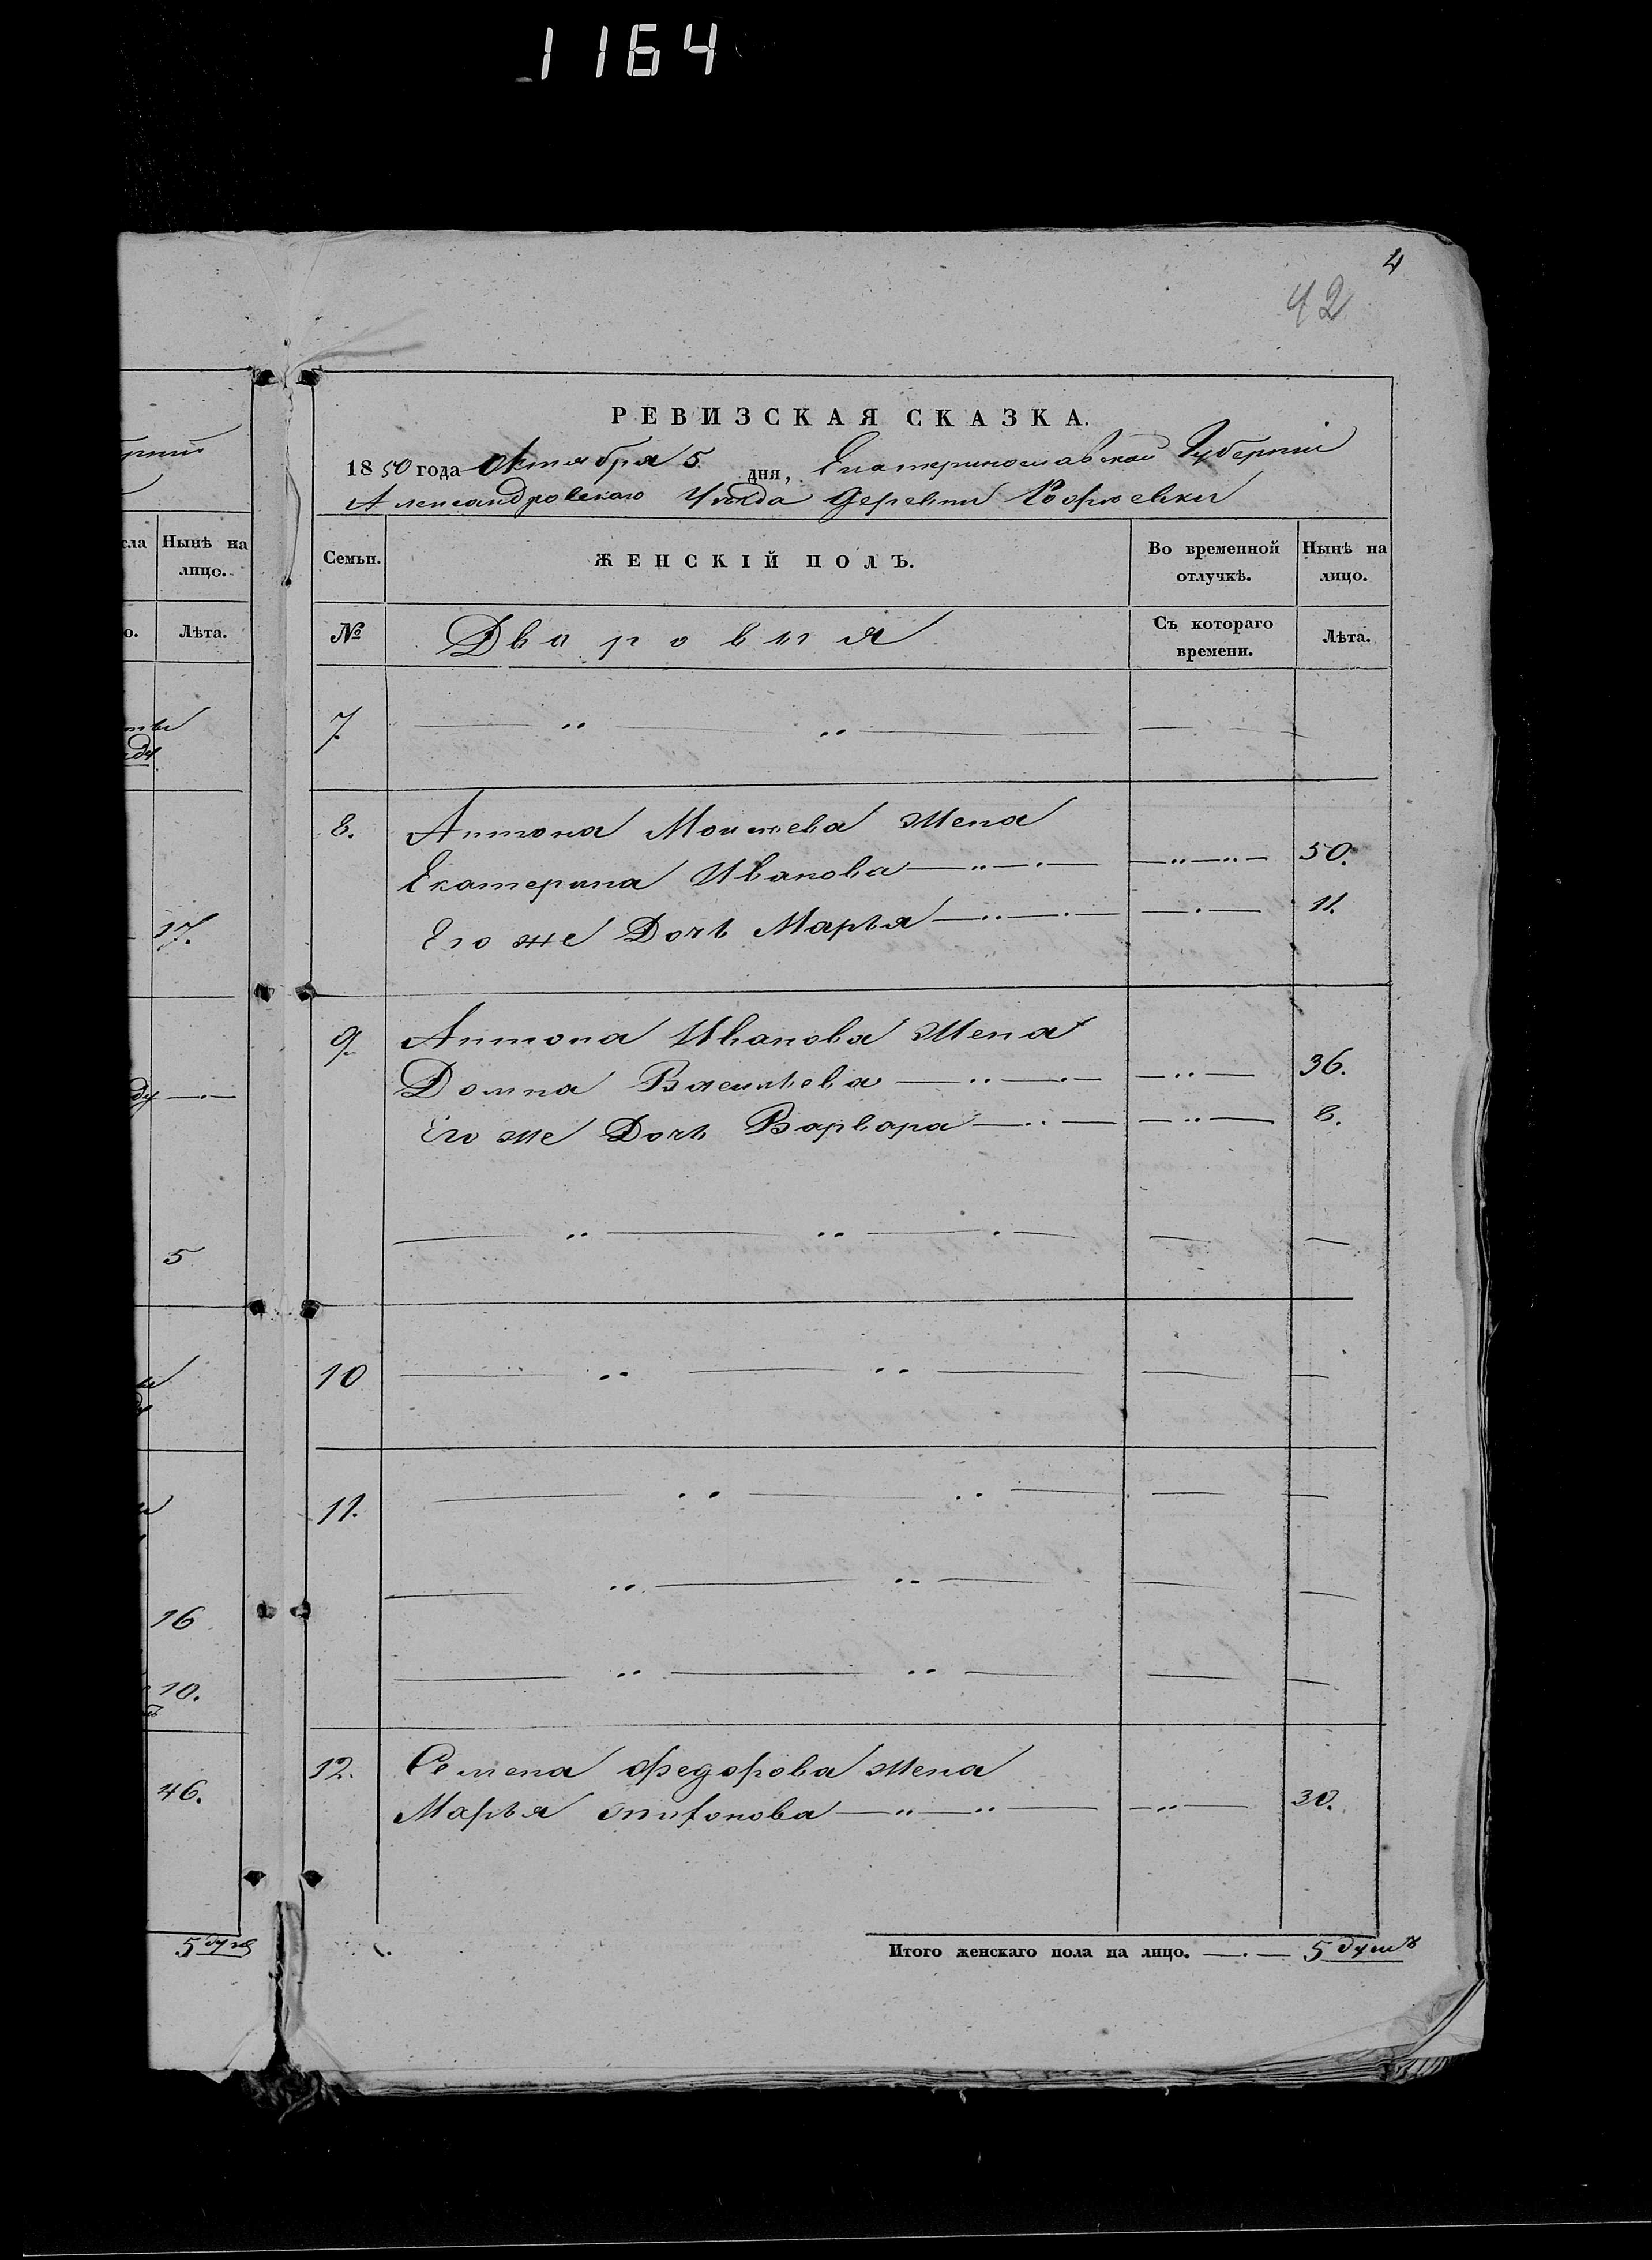 1164
4
42
РЕВИЗСКАЯ СКАЗКА.
1850 года Октября 5. дня, Екатеринославской Губерніи
Александровскаго Уѣзда Деревни
сла Нынѣ на лицо.
о. Лѣта.
Семьи. ЖЕНСКІЙ ПОЛЪ. Во временной отлучкѣ. Нынѣ на лицо.
№ Дворовыя Съ котораго времени. Лѣта.
7.
8. Антона Моисѣева Жена
Екатерина Иванова 50.
Его же Дочь Марья 11.
17.
9. Антона Иванова Жена
Домна Васильева 36.
Его же Дочь Варвара 8.
5
10
11.
16
10.
12. Семена Федорова Жена
Марья 30.
46.
5 душ
Итого женскаго пола на лицо. 5 душъ